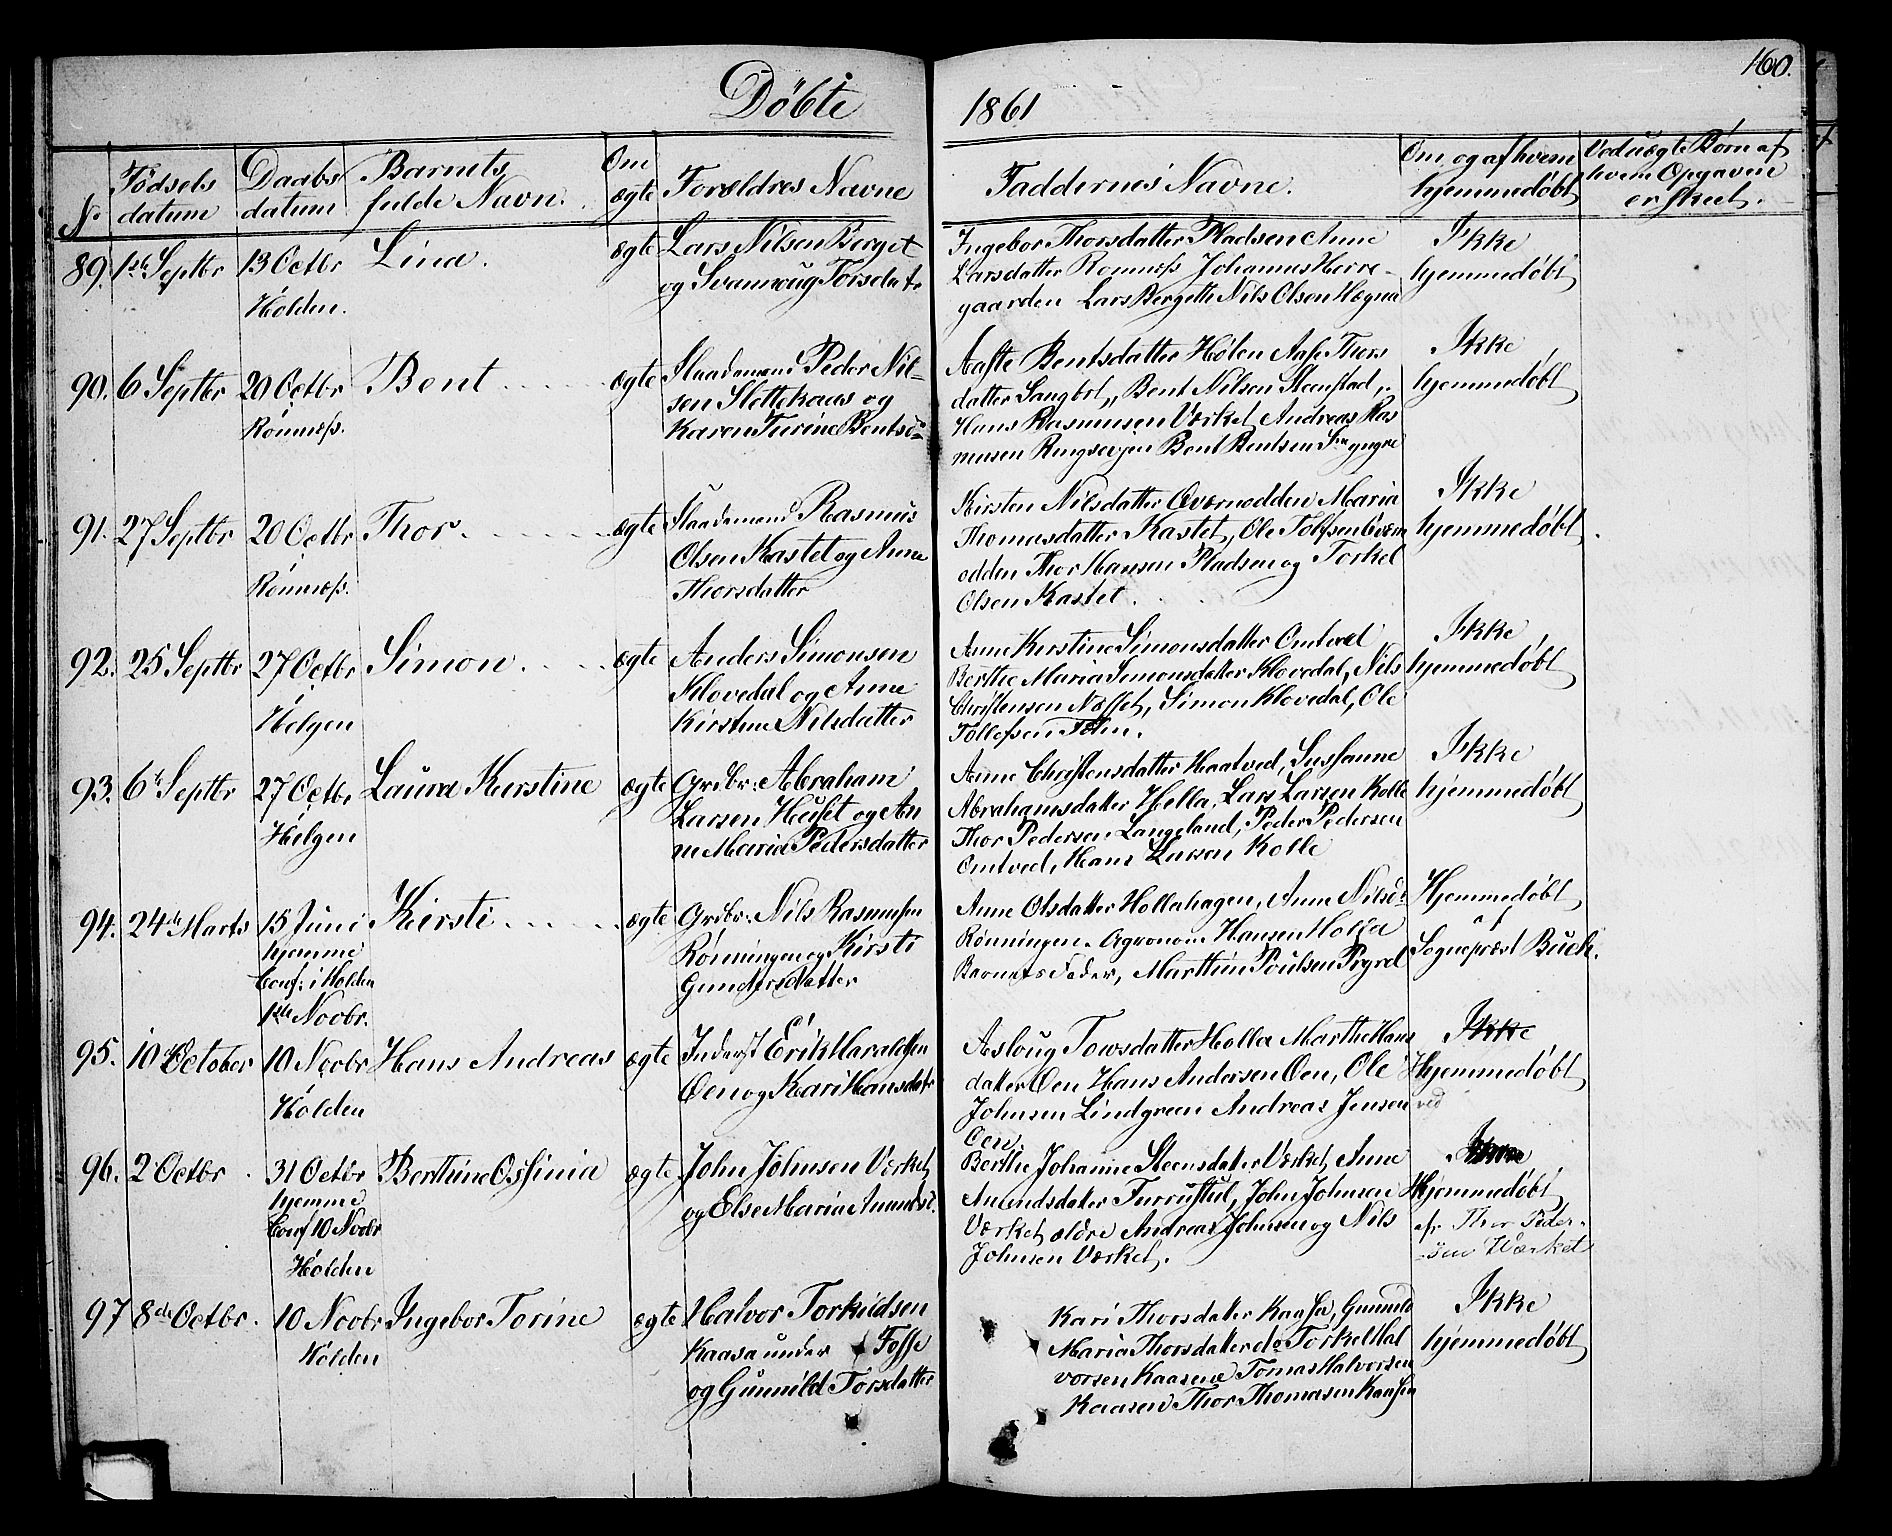 160.
Döbte
1861
No
Födsels datum
Daabs datum
Barnets fulde Navn.
Om ægte
Forældres Navne
Faddernes Navne.
Om og af hvem hjemmedöbt
Ved uægte Börn af hvem Opgaven er skeet.
89. 1ste Septbr
13 Octbr
Hölden.
Lina.
ægte
Lars Nilsen Berget
og Svannoug Torsdatr
Ingebor Thorsdatter Pladsen Anne
Larsdatter Romnæss Johannes Herre-
gaarden Lars Bergette Nils Olsen Hægna
Ikke
hjemmedöbt
90. 6 Septbr
20 Octbr
Römnæss.
Bent
ægte
Peder Nil-
sen Slettekaas og
Karen Turine Bentsd
Aaste Bentsdatter Hölen Aase Thors
datter Bent Nilsen Steenstad,
Hans Rasmusen Værket Andreas Ras
musen Ringsevjen Bent Bentsen yngre
Ikke
hjemmedöbt
91. 27 Septbr
20 Octbr
Römnæss.
Thor.
ægte
Rasmus
Olsen Kastet og Anne
Thorsdatter
Kirsten Nilsdatter Oværnodden Maria
Thomasdatter Kastet, Ole Tolfsen Overn
odden Thor Hansen Pladsen og Torkel
Olsen Kastet.
Ikke
hjemmedöbt.
92. 25 Septbr
27 Octbr
Helgen
Simon.
ægte
Anders Simonsen
Klovedal og Anne
Kirstine Nilsdatter
Anne Kerstine Simonsdatter Omtved
Berthe Maria Simonsdatter Klovedal, Nils
Christensen Næsset, Simon Klovedal, Ole
Tollefsen
Ikke
hjemmedöbt
93. 6te Septbr
27 Octbr
Helgen
Laura Kerstine
ægte
Grdbr: Abraham
Larsen Heiset og An
ne Maria Pedersdatter
Anne Christensdatter Haatved, Sussanne
Abrahamsdatter Hella, Lars Larsen Kolle
Thor Pedersen Langeland, Peder Pedersen
Omtved, Hans Larsen Kolle
Ikke
hjemmedöbt
94. 24de Marts
15 Juni
hjemme
Conf: i Holden
1ste Novbr.
Kirsti
ægte
Grdbr: Nils Rasmussen
Rönningen og Kirsti
Anne Olsdatter Hollahagen, Anne Nilsd:
Rönningen, Agronom Hansen Holla
Barnets Fader, Marthin Poulsen
Hjemmedöbt
af
Sognepræst Buch.
95. 10de October
10 Novbr
Hölden
Hans Andreas
ægte
Inderst Erik Haraldsen
Oen og Kari Hansdatr
Asloug Towsdatter Holla Marthe Hans
datter Oen Hans Andersen Oen, Ole
Johnsen Lindgreen Andreas Jensen
Oen.
Ikke
Hjemmedöbt
ved
96. 2 Octbr.
31 Octbr
hjemme
Conf 10 Novbr
Hölden
Berthine Ossinia
ægte
John Johnsen Værket
og Else Maria Amundsd.
Berthe Johanne Steensdatter Værket, Anne
Amundsdatter Furustul, John Johnsen
Værket ældre Andreas Johnsen og Nils
Johnsen Værket.
Hjemmedöbt
af Thor Peder-
sen Værket
97 8de Octbr.
10 Novbr
Hölden
Ingebor Torine
ægte
Halvor Torkildsen
Kaasa under Fosse
og Gunnild Torsdatter
Kari Thorsdatter Kaasa, Gunnild
Maria Thorsdatter do Torkel Hal
vorsen Kaasene Tomas Halvorsen
Kaasen Thor Thomasen Kaasen
Ikke
hjemmedöbt